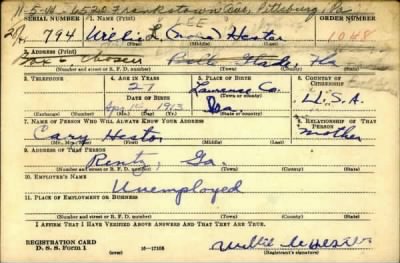 11-5-41-6520 Frankstown Ave, Pittsburg, Pa.
SERIAL NUMBER 1. NAME (Print) LEE ORDER NUMBER
794 Willie L. (none) Hester 1048
(First) (Middle) (Last)
2. ADDRESS (Print)
Box Chosen Belle Glade, Fla
(Number and street or R. F. D. number) (Town) (County) (State)
3. TELEPHONE 4. AGE IN YEARS 5. PLACE OF BIRTH 6. COUNTRY OF CITIZENSHIP
27 Laurence Co.
DATE OF BIRTH (Town or county)
Apr. 1913 Ga. U.S.A.
(Exchange) (Number) (Mo.) (Day) (Yr.) (State or country)
7. NAME OF PERSON WHO WILL ALWAYS KNOW YOUR ADDRESS 8. RELATIONSHIP OF THAT PERSON
Cary Hester mother
(Mr., Mrs., Miss) (First) (Middle) (Last)
9. ADDRESS OF THAT PERSON
Rentz, Ga.
(Number and street or R. F. D. number) (Town) (County) (State)
10. EMPLOYER'S NAME
Unemployed
11. PLACE OF EMPLOYMENT OR BUSINESS
(Number and street or R. F. D. number) (Town) (County) (State)
I AFFIRM THAT I HAVE VERIFIED ABOVE ANSWERS AND THAT THEY ARE TRUE.
REGISTRATION CARD
D. S. S. Form 1 16-17105 Willie Hester